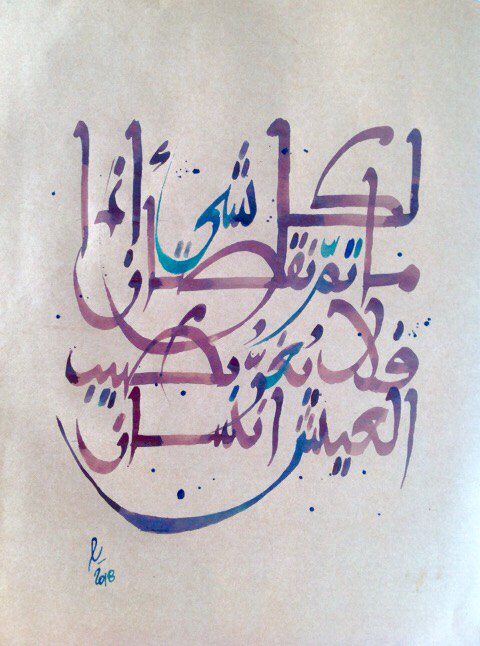 لكل شئ إذا
ما تمّ نقصان
فلا يُغرُّ بطيب
العيش انسان
2018